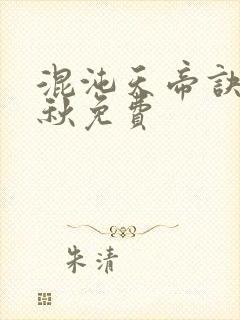 混沌天帝訣
秋免費
朱清